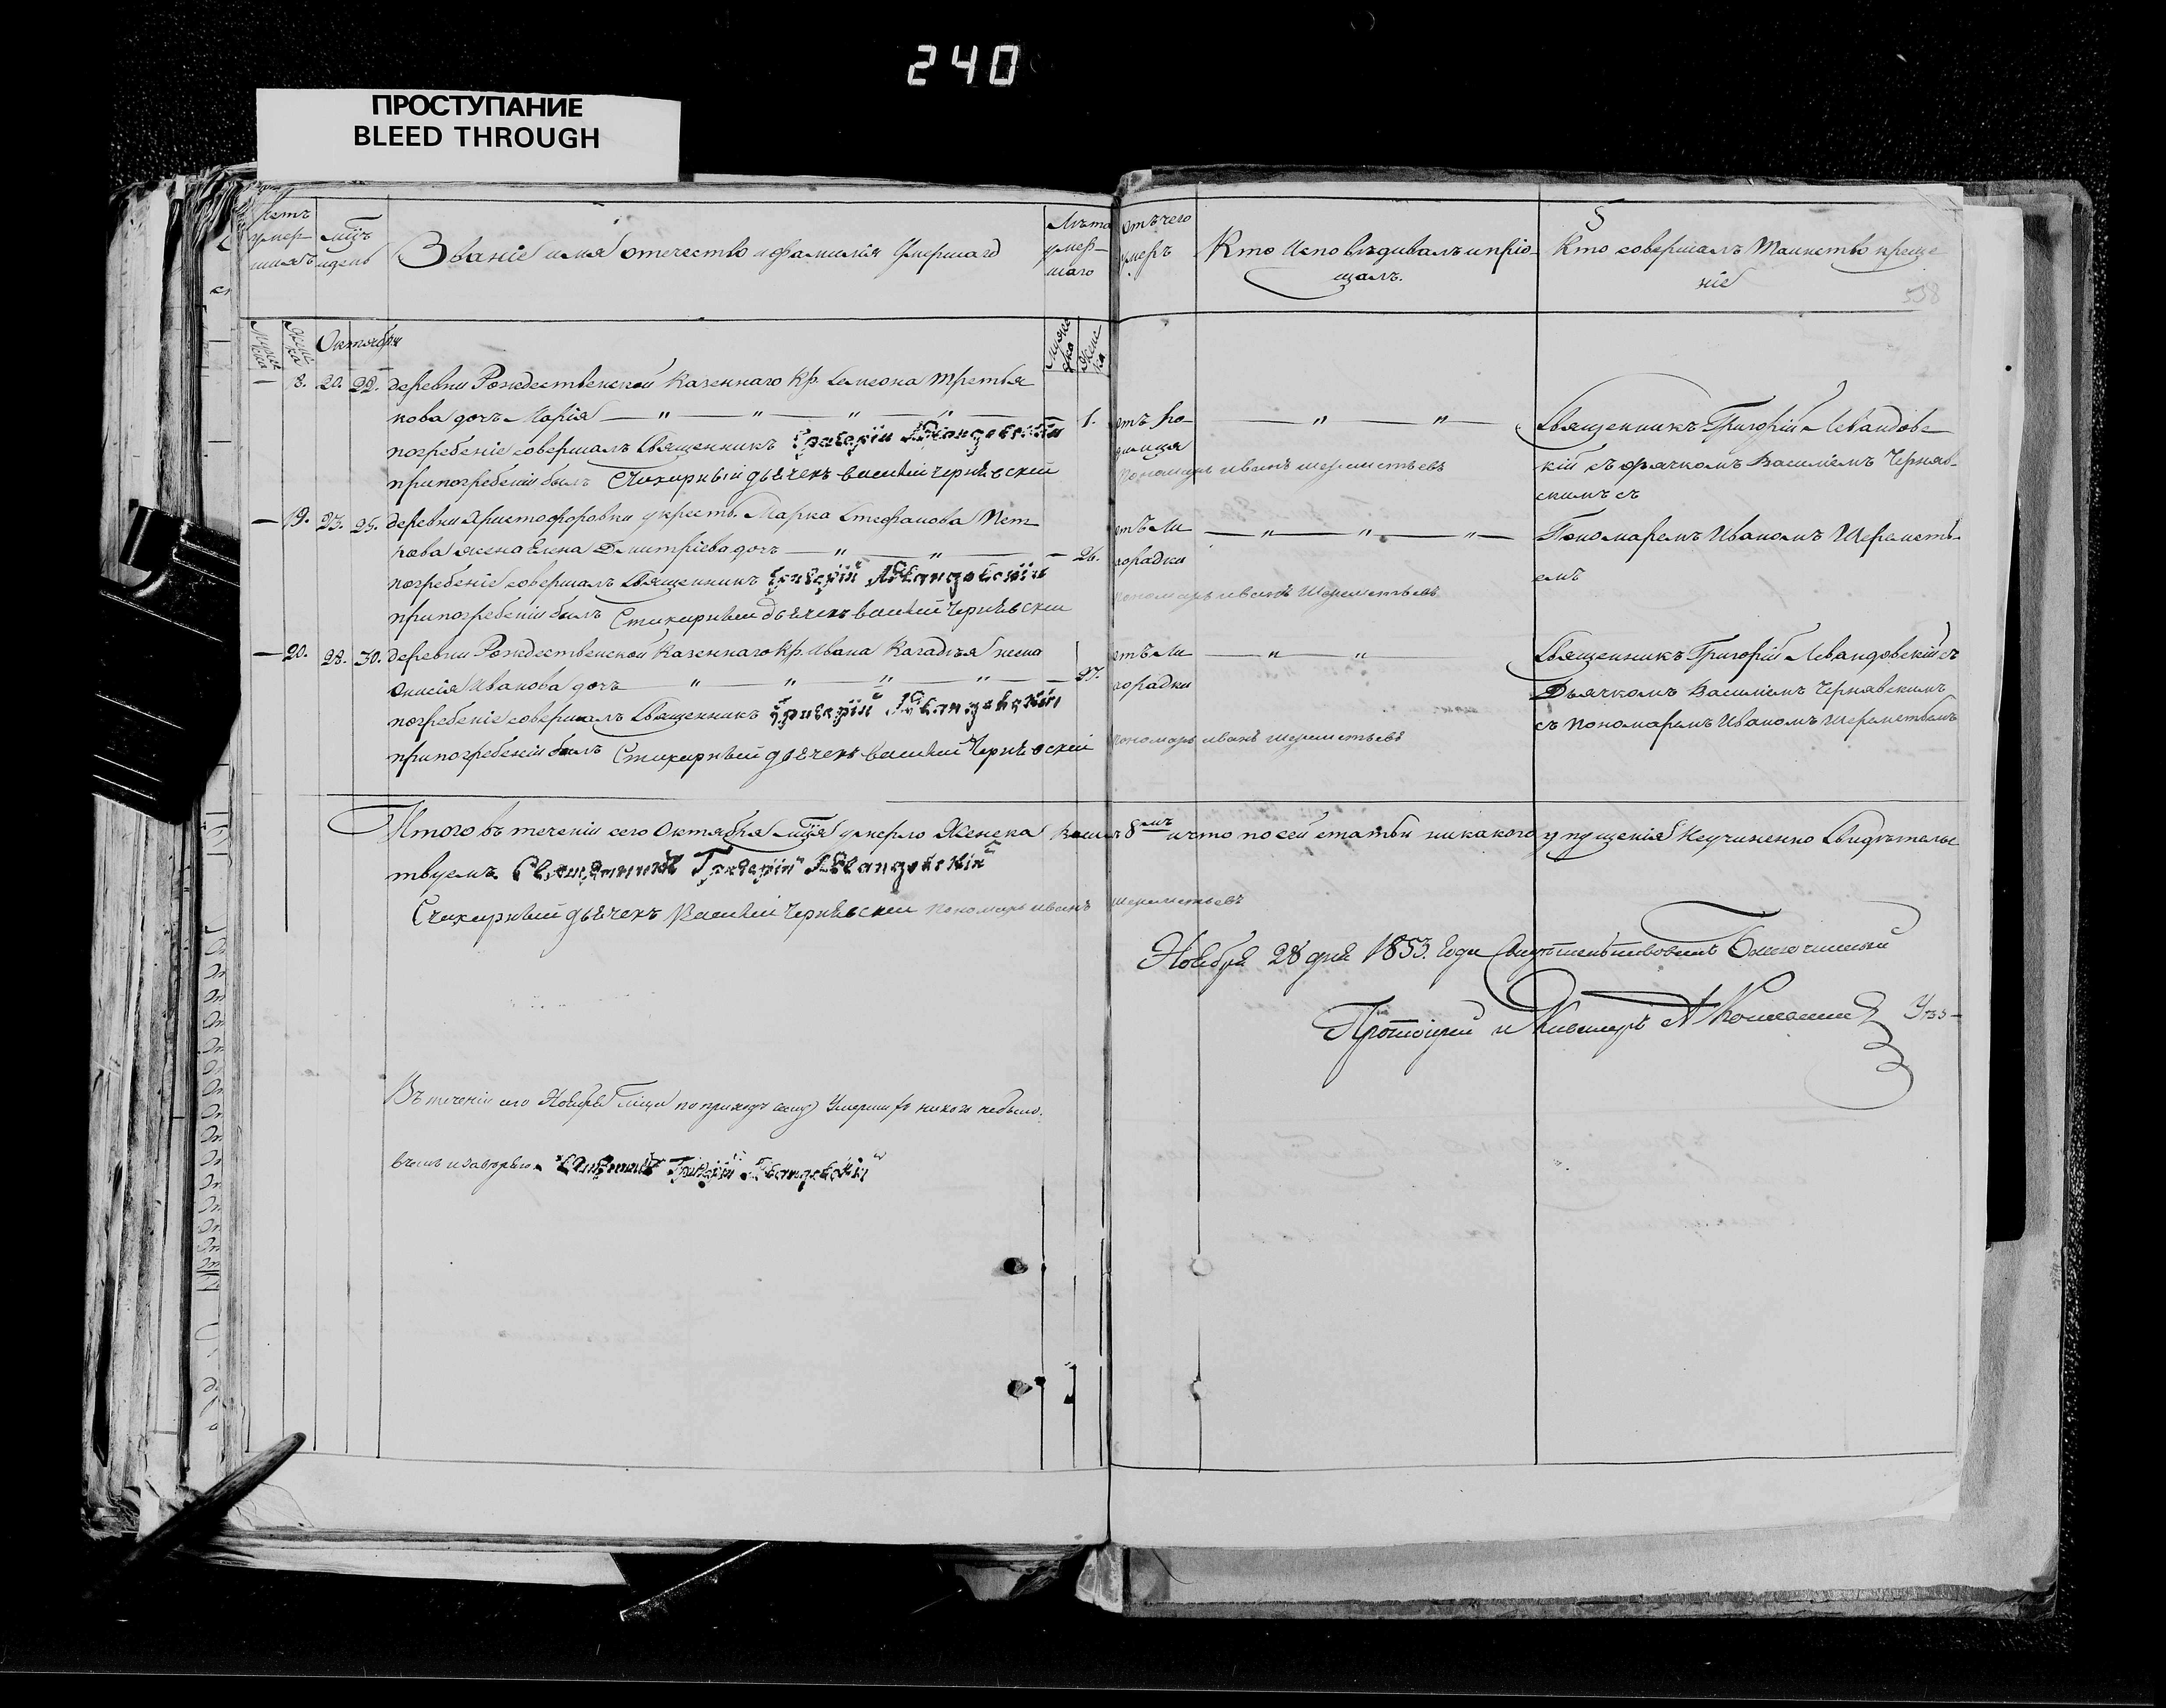 240
ПРОСТУПАНИЕ
BLEED THROUGH
умер-
шихъ
мцъ
и день
Званіе имя отечество и фамилія Умершаго
Лѣта
умер-
шаго
отъ чего
умеръ
Кто Исповѣдивалъ и пріо-
щалъ.
5
Кто совершалъ Таинство креще
ніе
538
Октября
— 8. 20. 22. деревни Рождественской Казеннаго Кр. Симеона Третья
кова дочь Марія — " — " — " — " — 1.
погребеніе совершалъ Священникъ Григорій Левандовскій
при погребеніи былъ Стихарный дьячекъ Василий Чернявский
отъ ро
димца
Пономарь Иванъ Шереметьевъ
Священникъ Григорій Левандовс-
кій съ дьячкомъ Василіемъ Черняв-
скимъ съ
— 19. 23. 25. деревни Христофоровки у крестъ. Марка Стефанова Пет
рова жена Елена Димитріева дочь — " — " — 26.
погребеніе совершалъ Священникъ Григорій Левандовскій
при погребеніи былъ Стихарный дьячекъ Василий Чернявский
отъ Ли
хорадки
пономарь Иванъ Шереметьевъ
Пономаремъ Иваномъ Шереметь-
емъ
— 20. 28. 30. деревни Рождественской Казеннаго Кр. Ивана жена
Ивановa дочь — " — " — " — " — 27.
погребеніе совершалъ Священникъ Григорій Левандовскій
при погребеніи былъ Стихарный дьячекъ Василий Чернявский
отъ Ли
хорадки
пономарь Иванъ Шереметьевъ
Священникъ Григорій Левандовскій съ
Дьячкомъ Василіемъ Чернявскимъ
съ пономаремъ Иваномъ Шереметьемъ
Итого въ теченіи сего Октября мця умерло Женска 8мъ и что по сей статьи никакого упущенія неучиненно Свидѣтельс
твуемъ. Священникъ Григорій Левандовскій
Стихарный дьячекъ Василий Чернявский пономарь Иванъ Шереметьевъ
Ноября 28 дня 1853. Года Свидѣтельствовалъ Благочинный
Протоіерей и Кавалеръ А
Въ теченіи сего Ноября мца по приходу сему Умершихъ никого небыло.
въ чемъ и завѣряю. Священникъ Григорій Левандовскій